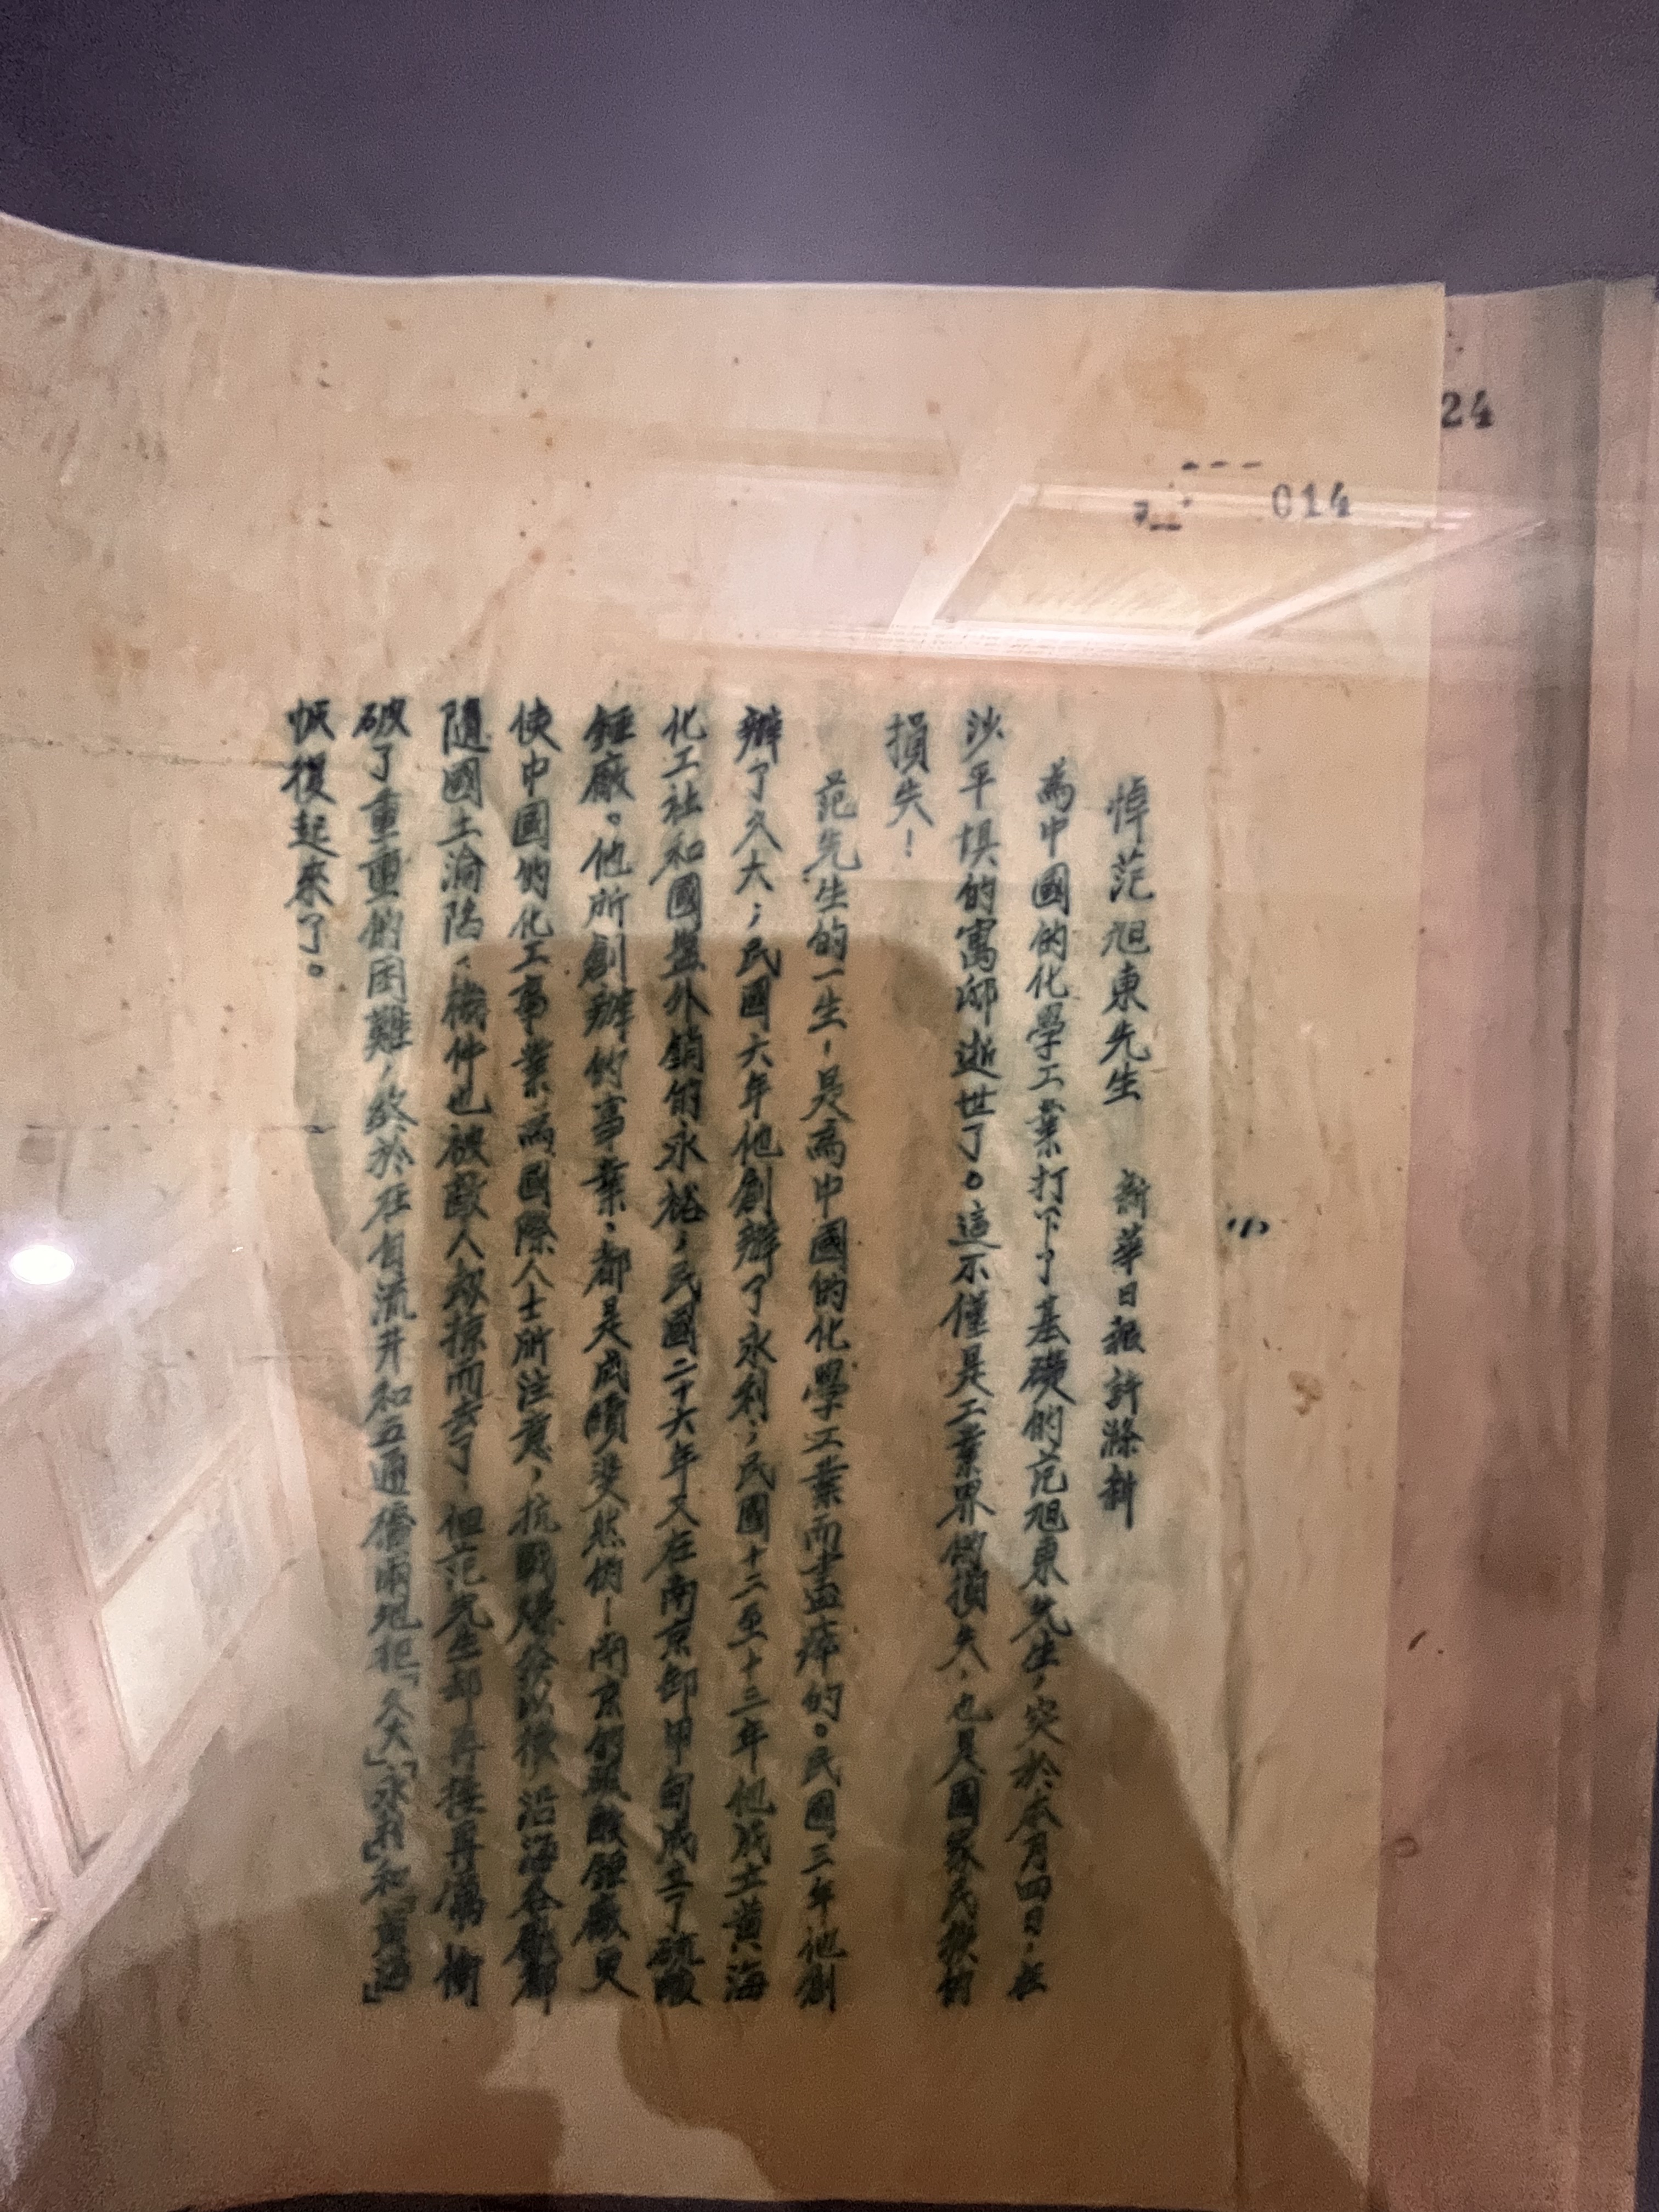 24
014
(1)
悼范旭東先生 新華日報許滌新
為中國的化學工業打下了基礎的范旭東先生，突於本月四日，在
沙平垻的寓邸逝世了。這不僅是工業界的損失，也是國家民族的
損失！
范先生的一生，是為中國的化學工業而盡瘁的。民國三年他創
辦了久大；民國六年他創辦了永利；民國十二至十三年他成立黃海
化工社和國鹽外銷的永裕；民國二十六年又在南京卸甲甸成立了硫酸
錏廠。他所創辦的事業，都是成績斐然的！南京的硫酸錏廠更
使中國的化工事業為國際人士所注意，抗戰爆發以後沿海各廠都
隨國土淪陷，機件也被敵人刼掠而去了，但范先生却再接再厲，衝
破了重重的困難，終於在自流井和五通橋兩地把「久大」「永利」和「黃海」
恢復起來了。